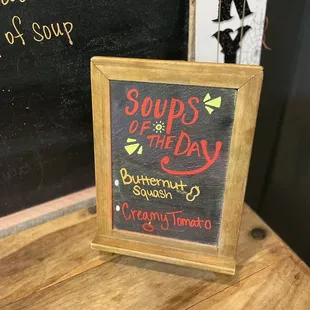 of soup
Soups
of the Day
Butternut
Squash
Creamy Tomato